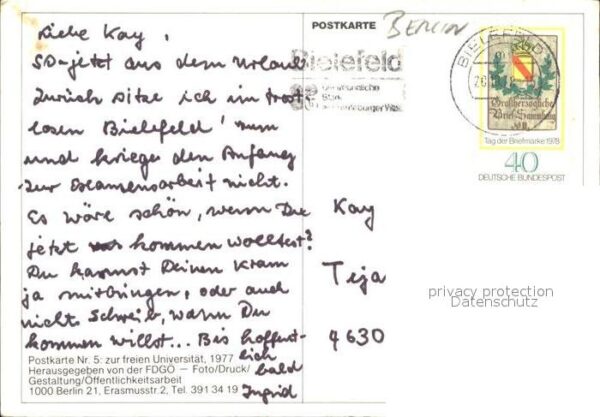 POSTKARTE BERLIN
BIELEFELD
Bielefeld
die freundliche
Stadt
Großherzogliche
Brief-Sammlung
Tag der Briefmarke 1978
40
DEUTSCHE BUNDESPOST
Liebe Kay,
SO-jetzt aus dem Urlaub
zurück sitze ich im trost
losen Bielefeld rum
und kriege den Anfang
zur Examensarbeit nicht.
Es wäre schön, wenn Du
jetzt kommen wolltest?
Du kannst Deinen Kram
ja mitbringen, oder auch
nicht. Schreib, wann Du
kommen willst... Bis hoffent-
lich
bald
Ingrid
Kay
Teja
4630
privacy protection
Datenschutz
Postkarte Nr. 5: zur freien Universität, 1977
Herausgegeben von der FDGÖ — Foto/Druck/
Gestaltung/Öffentlichkeitsarbeit
1000 Berlin 21, Erasmusstr. 2, Tel. 391 34 19